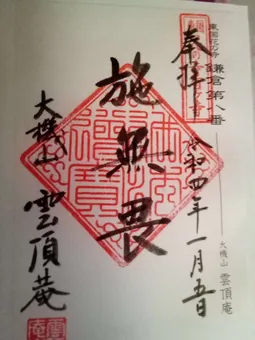 奉拝
東国花の寺
鎌倉第八番
令和四年一月五日
大機山 雲頂庵
施無畏
大機山
雲頂菴